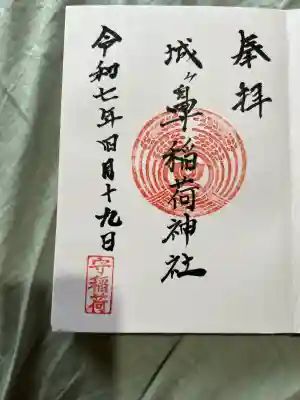 奉拝
城ヶ崋稲荷神社
令和七年四月十九日
守稲荷